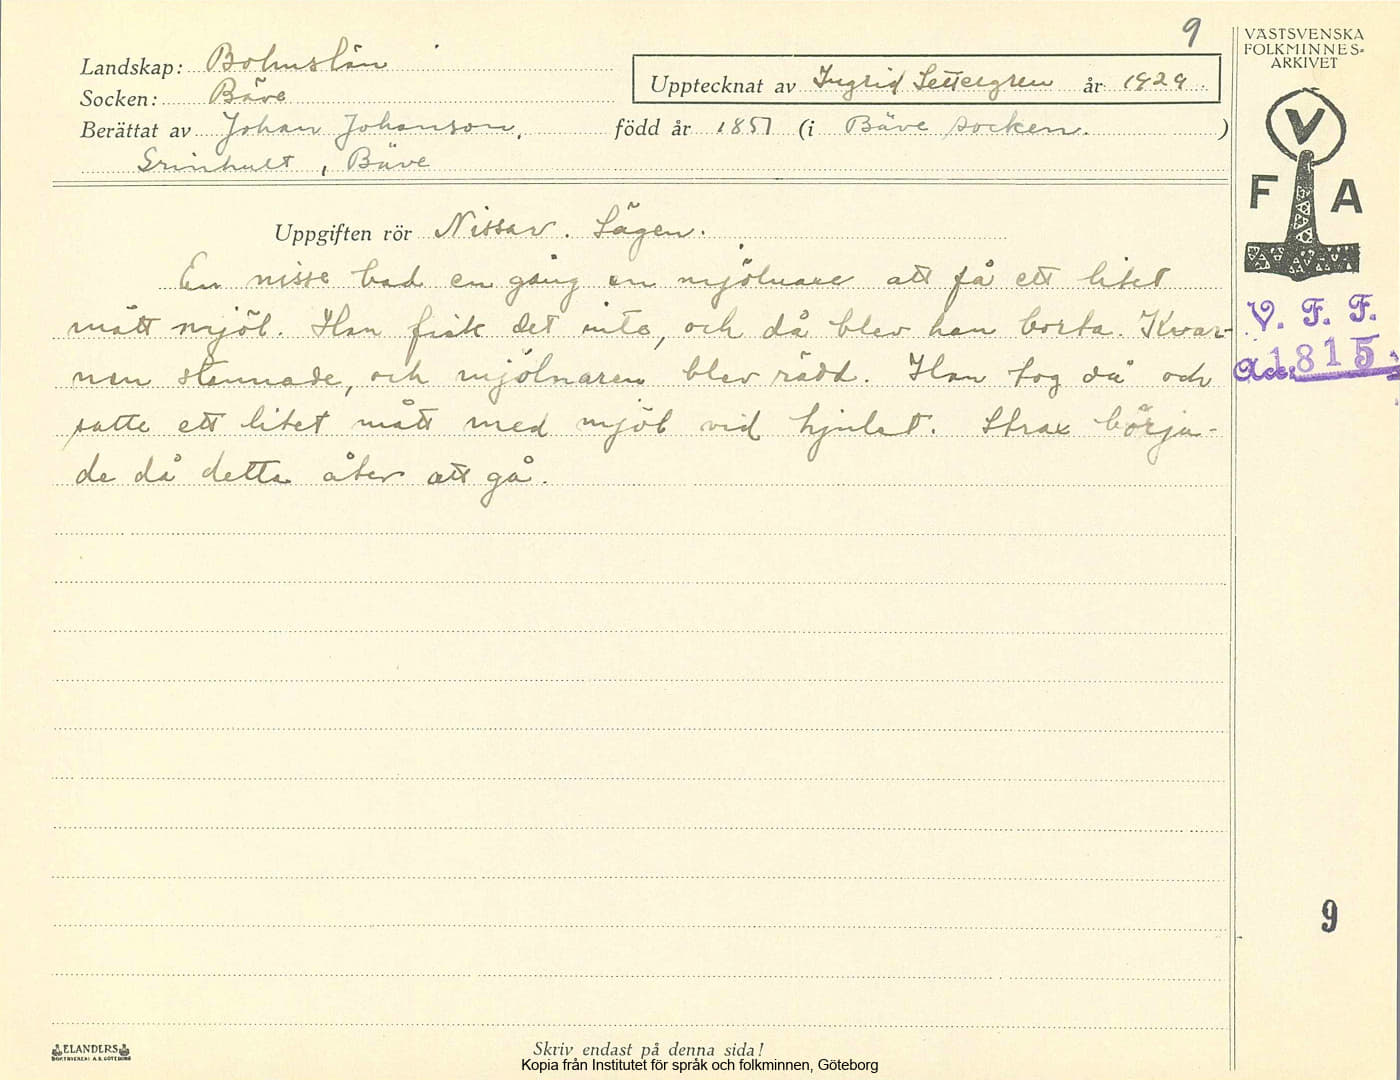 9
Landskap: Bohuslän
Socken: Bäve
Upptecknat av Ingrid Settergren år 1929.
Berättat av Johan Johanson, född år 1851 (i Bäve socken. )
Grinhult, Bäve
Uppgiften rör Nissar. Sägen.
En nisse bad en gång en mjölnare att få ett litet
mått mjöl. Han fick det inte, och då blev han borta. Kvar-
nen stannade, och mjölnaren blev rädd. Han tog då och
satte ett litet mått med mjöl vid hjulet. Strax börja-
de då detta åter att gå.
VÄSTSVENSKA
FOLKMINNES-
ARKIVET
V
F A
V. F. F.
Acc: 1815
9
ELANDERS
BOKTRYCKERI A.B. GÖTEBORG
Skriv endast på denna sida!
Kopia från Institutet för språk och folkminnen, Göteborg